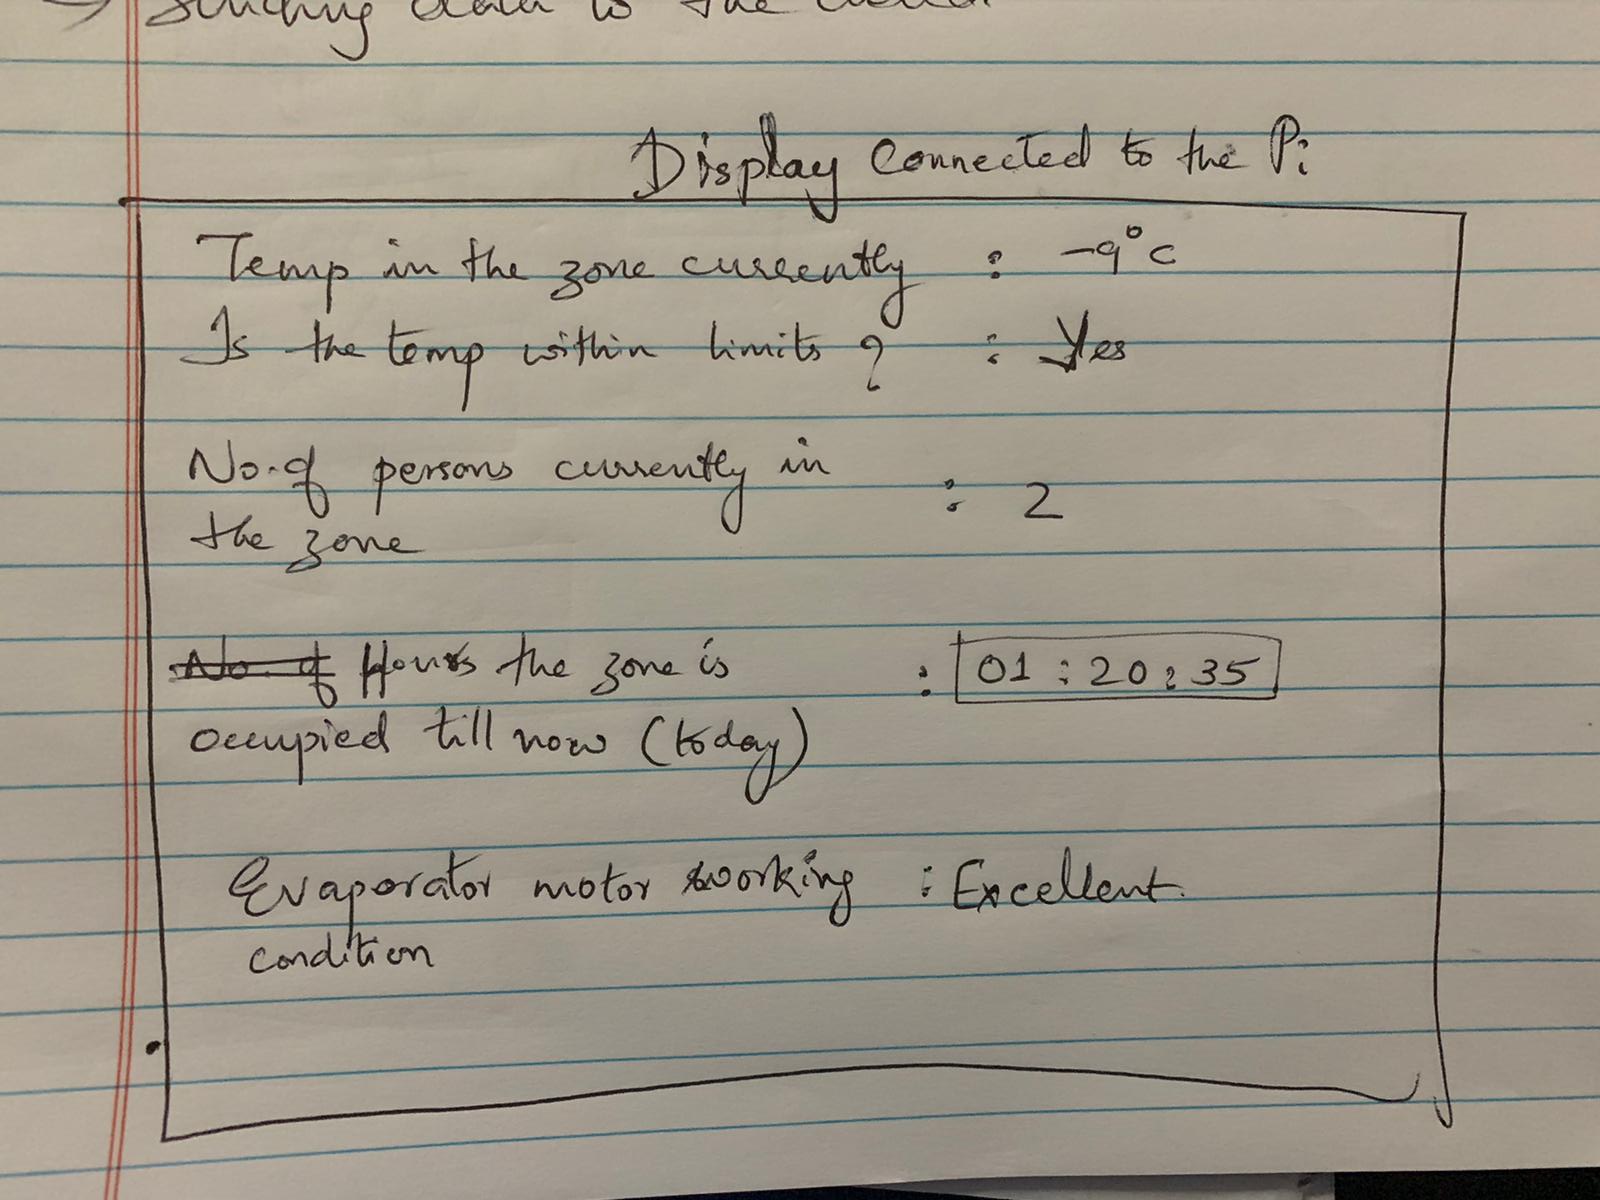 to the
Display Connected to the Pi
Temp in the zone currently : -9°c
Is the temp within limits ? : Yes
No. of persons currently in
the zone : 2
No. of Hours the zone is : 01 : 20 : 35
occupied till now (today)
Evaporator motor working : Excellent.
condition